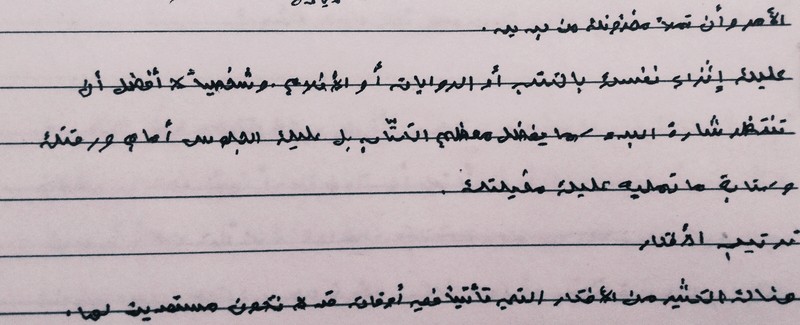 الأمر وأن تملأ مخزونك من جديد.
عليك إثراء نفسك بالكتب أو الروايات أو الأفلام. وشخصياً لا أفضل أن
تنتظر شارة البدء كما يفضل معظم الكتّاب بل عليك الجلوس أمام ورقتك
وكتابة ما تمليه عليك مخيلتك.
ترتيب الأفكار
هنالك الكثير من الأفكار التي تأتينا في أوقات قد لا نكون مستعدين لها.